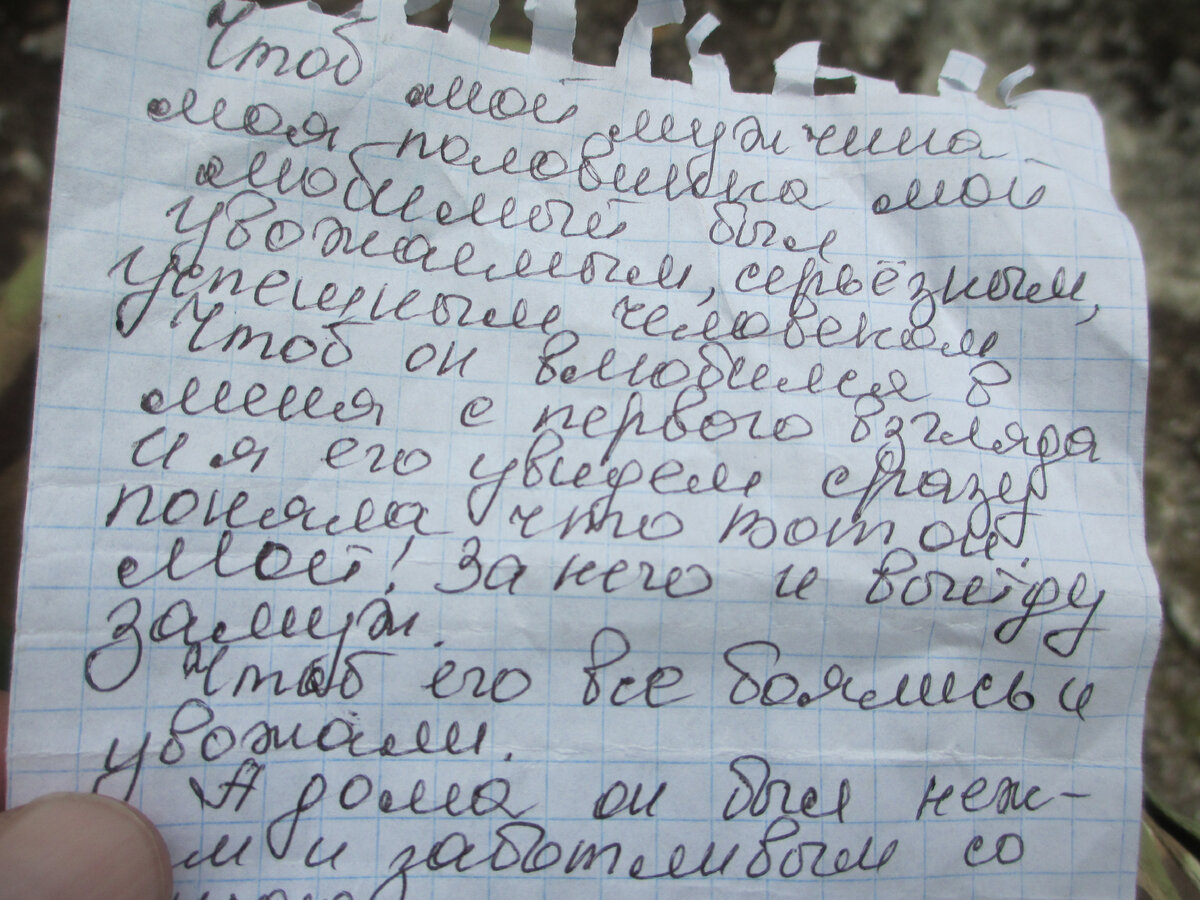 Чтоб мой мужчина -
моя половинка мой
любимый был
уважаемым, серьёзным,
успешным человеком
Чтоб он влюбился в
меня с первого взгляда
и я его увидем сразу
поняла что вот он
мой! За него и выйду
замуж.
Чтоб его все боялись и
увожали.
А дома он был неж-
м и заботливым со